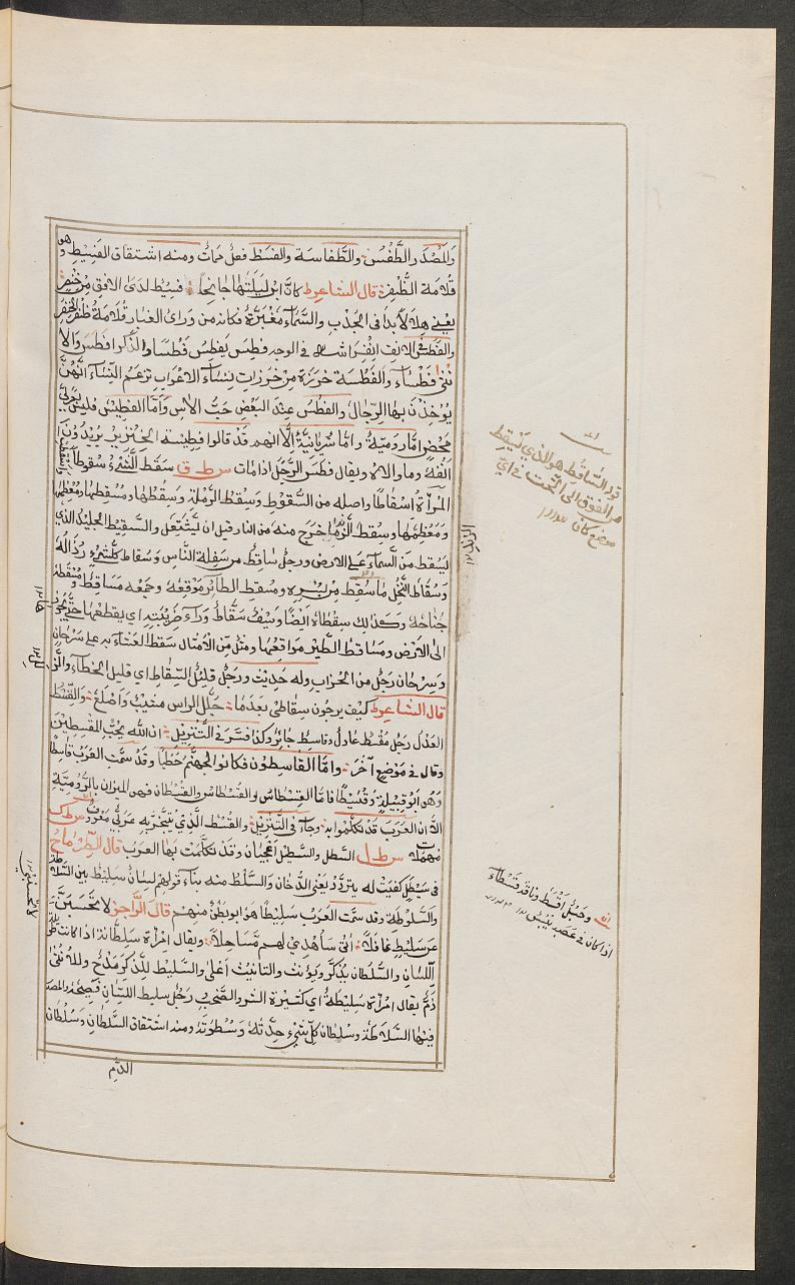 والمصدر الطفس والطفاسة والفسط فعل ممات ومنه اشتقاق الفسيط وهو
قلامة الظفر قال الشاعر ط كان ابن ليلتها جانحا فسيط لدى الافق من خنصر
يعني هلالا بدا في الجدب والسماء مغبرة فكانه من وراى الغبار قلامة ظفر الخنصر
والفطس الانف انفراشه في الوجه فطس يفطس فطسا والذكر افطس والا
نثى فطساء والفطسة خرزة من خرزات نساء الاعراب تزعم النساء انهن
يوخذن بها الرجال والفطس عند البعض حب الآس واما الفطيس فليس بعربي
محض اما رومية واما سريانية الا انهم قد قالوا فطيسة الخنزير يريدون
انفه وما والاه ويقال فطس الرجل اذا مات س ط ق سقط الشيء سقوطا واسقطت
المرأة اسقاطا واصله من السقوط وسقط الرملة وسقطها ومسقطها ومعظمها
ومعظمها وسقط الزند ما خرج منه من النار قبل ان يشتعل والسقيط الجليد الذي
يسقط من السماء على الارض ورجل ساقط من سفلة الناس وسقاط كل شيء رذاله
وسقاط النخل ما سقط من بسره ومسقط الطائر موقعه وجمعه مساقط ومسقطه
جناحه وكذلك سقطاه ايضا وسيف سقاط وراء ضريبته اي يقطعها حتى يجوز
الى الارض ومساقط الطير مواقعها ومثل من الامثال سقط العشاء به على سرحان
وسرحان رجل من الحراب وله حديث ورجل قليل السقاط اي قليل الخطاء والـ
قال الشاعر ط كيف يرجون سقاطي بعدما جلل الراس مشيب واصلع والقسط
العدل رجل مقسط عادل وقاسط جائر وكذا فسر في التنزيل ان الله يحب المقسطين
وقال في موضع آخر واما القاسطون فكانوا لجهنم حطبا وقد سمت العرب قاسطا
وهو ابو قبيلة وقسيطا فاما القسطاس والقسطاس والقسطان فهو الميزان بالرومية
الا ان العرب قد تكلموا به وجاء في التنزيل والقسط الذي يتبخر به عربي معروف س ط ك
مهملات س ط ل السطل والسيطل اعجميان وقد تكلمت بها العرب قال الطرماح
في سيطل كفئت له يتردد يعني الدخان والسلط منه بناء قولهم لسان سليط بين السلاطة
والسلوطة وقد سمت العرب سليطا هو ابو بطن منهم قال الراجز لا تحسبني
عن سليط غافلا اني ساهدي لهم مساحلا ويقال امرأة سلطانة اذا كانت طويلة
اللسان والسلطان يذكر ويؤنث والتانيث اعلى والسليط للذكر مدح وللانثى
ذم يقال امرأة سليطة اي كثيرة الشر والصخب رجل سليط اللسان فصيحة والمصدر
فيها السلاطة وسلطان كل شيء حدته وسطوته ومنه اشتقاق السلطان وسلطان
الدم
قوله الساقط هو الذي يسقط
من الفوق الى التحت في اي
موضع كان
الزند
وجمل اقسط وناقة قسطاء
اذا كان في عصبه يبس
لا تحسبني